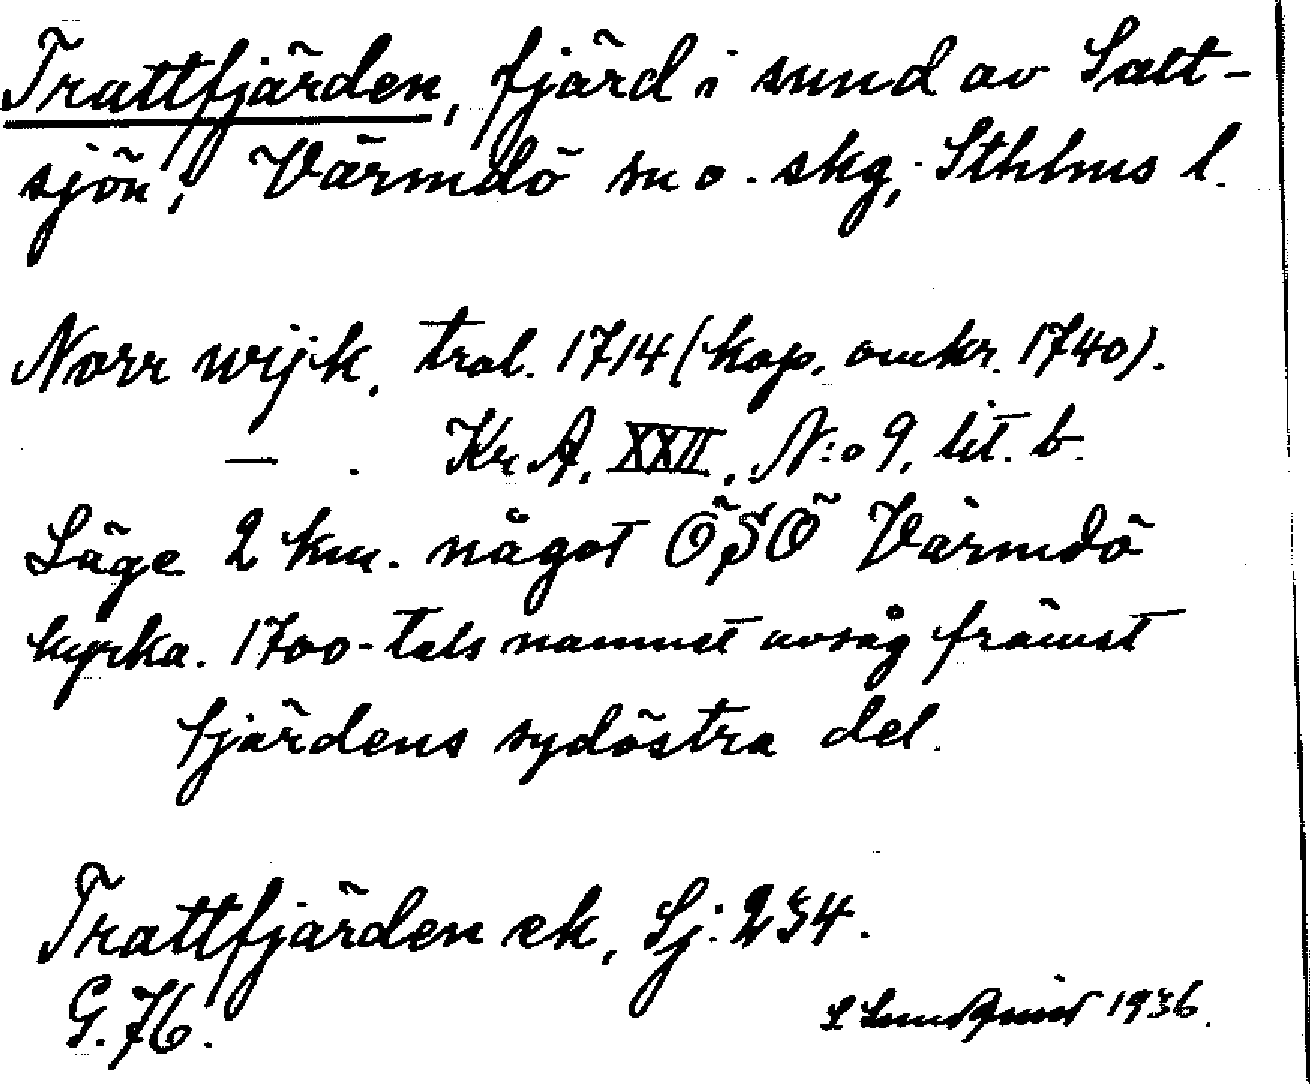 Trattfjärden, fjärd i sund av Salt-
sjön, Värmdö sn o. skg, Sthlms l.
Norr wijk. tral. 1714 (kop. omkr. 1740).
— . Kr A, XXII, N:o 9, lit. b.
Läge 2 km. något ÖSÖ Värmdö
kyrka. 1700-tals namnet avsåg främst
fjärdens sydöstra del.
Trattfjärden ek, Sj: 234.
G. 76.
L Lundquist 1936.